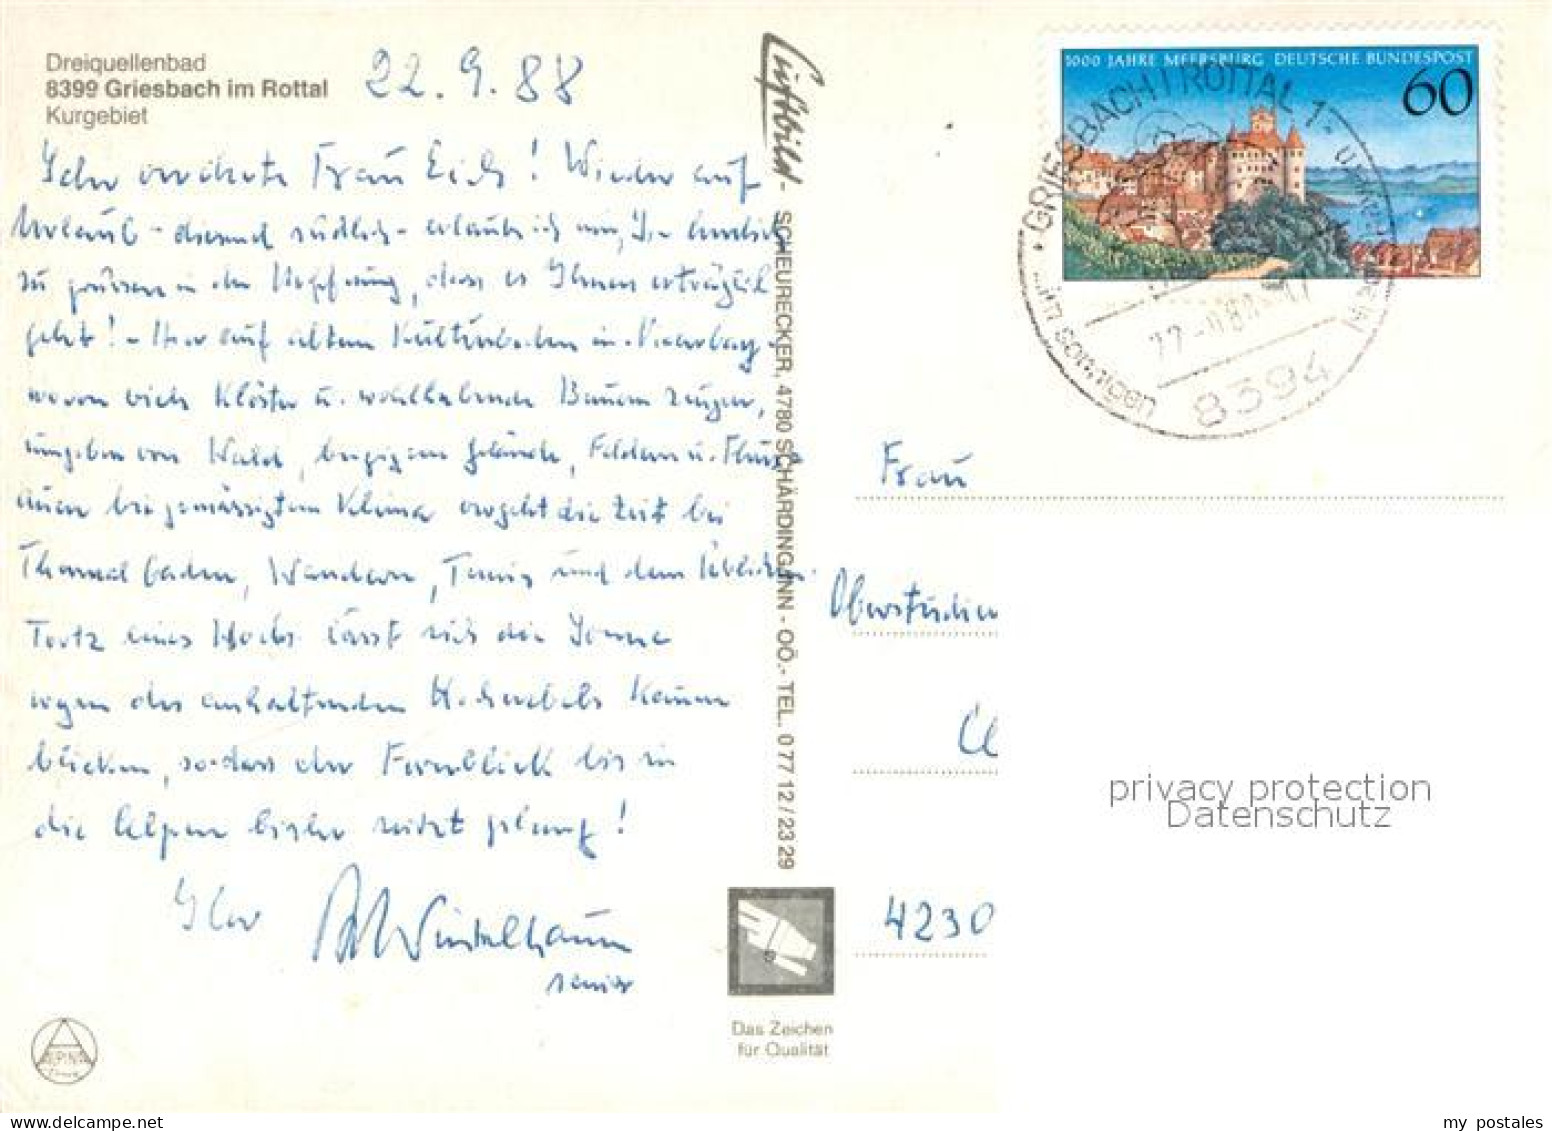 Dreiquellenbad
8399 Griesbach im Rottal
Kurgebiet
22.9.88
Sehr verehrte Frau Eich! Wieder auf
Urlaub - diesmal südlich - erlaube ich mir, Sie herzlich
zu grüssen in der Hoffnung, dass es Ihnen erträglich
geht! - Hier auf altem Kulturboden in Niederbay-
wovon viele Klöster u. wohlhabende Bauern zeugen,
umgeben von Wald, bergigem Gelände, Feldern u. Fluss-
auen bei gemässigtem Klima vergeht die Zeit bei
Thermalbaden, Wandern, Tennis und dem Üblichen.
Trotz eines Hochs lässt sich die Sonne
wegen des anhaltenden Hochnebels kaum
blicken, so dass der Fernblick bis in
die Alpen bisher nicht gelang!
Ihr Winkelhaum
senior
Luftbild - SCHEURECKER, 4780 SCHÄRDING/INN - OÖ.- TEL. 0 77 12 / 23 29
Das Zeichen
für Qualität
ALPINA
1000 JAHRE MEERSBURG DEUTSCHE BUNDESPOST
60
GRIESBACH I ROTTAL 1
im sonnigen
8394
Frau
Oberstudien
4230
privacy protection
Datenschutz
my postales